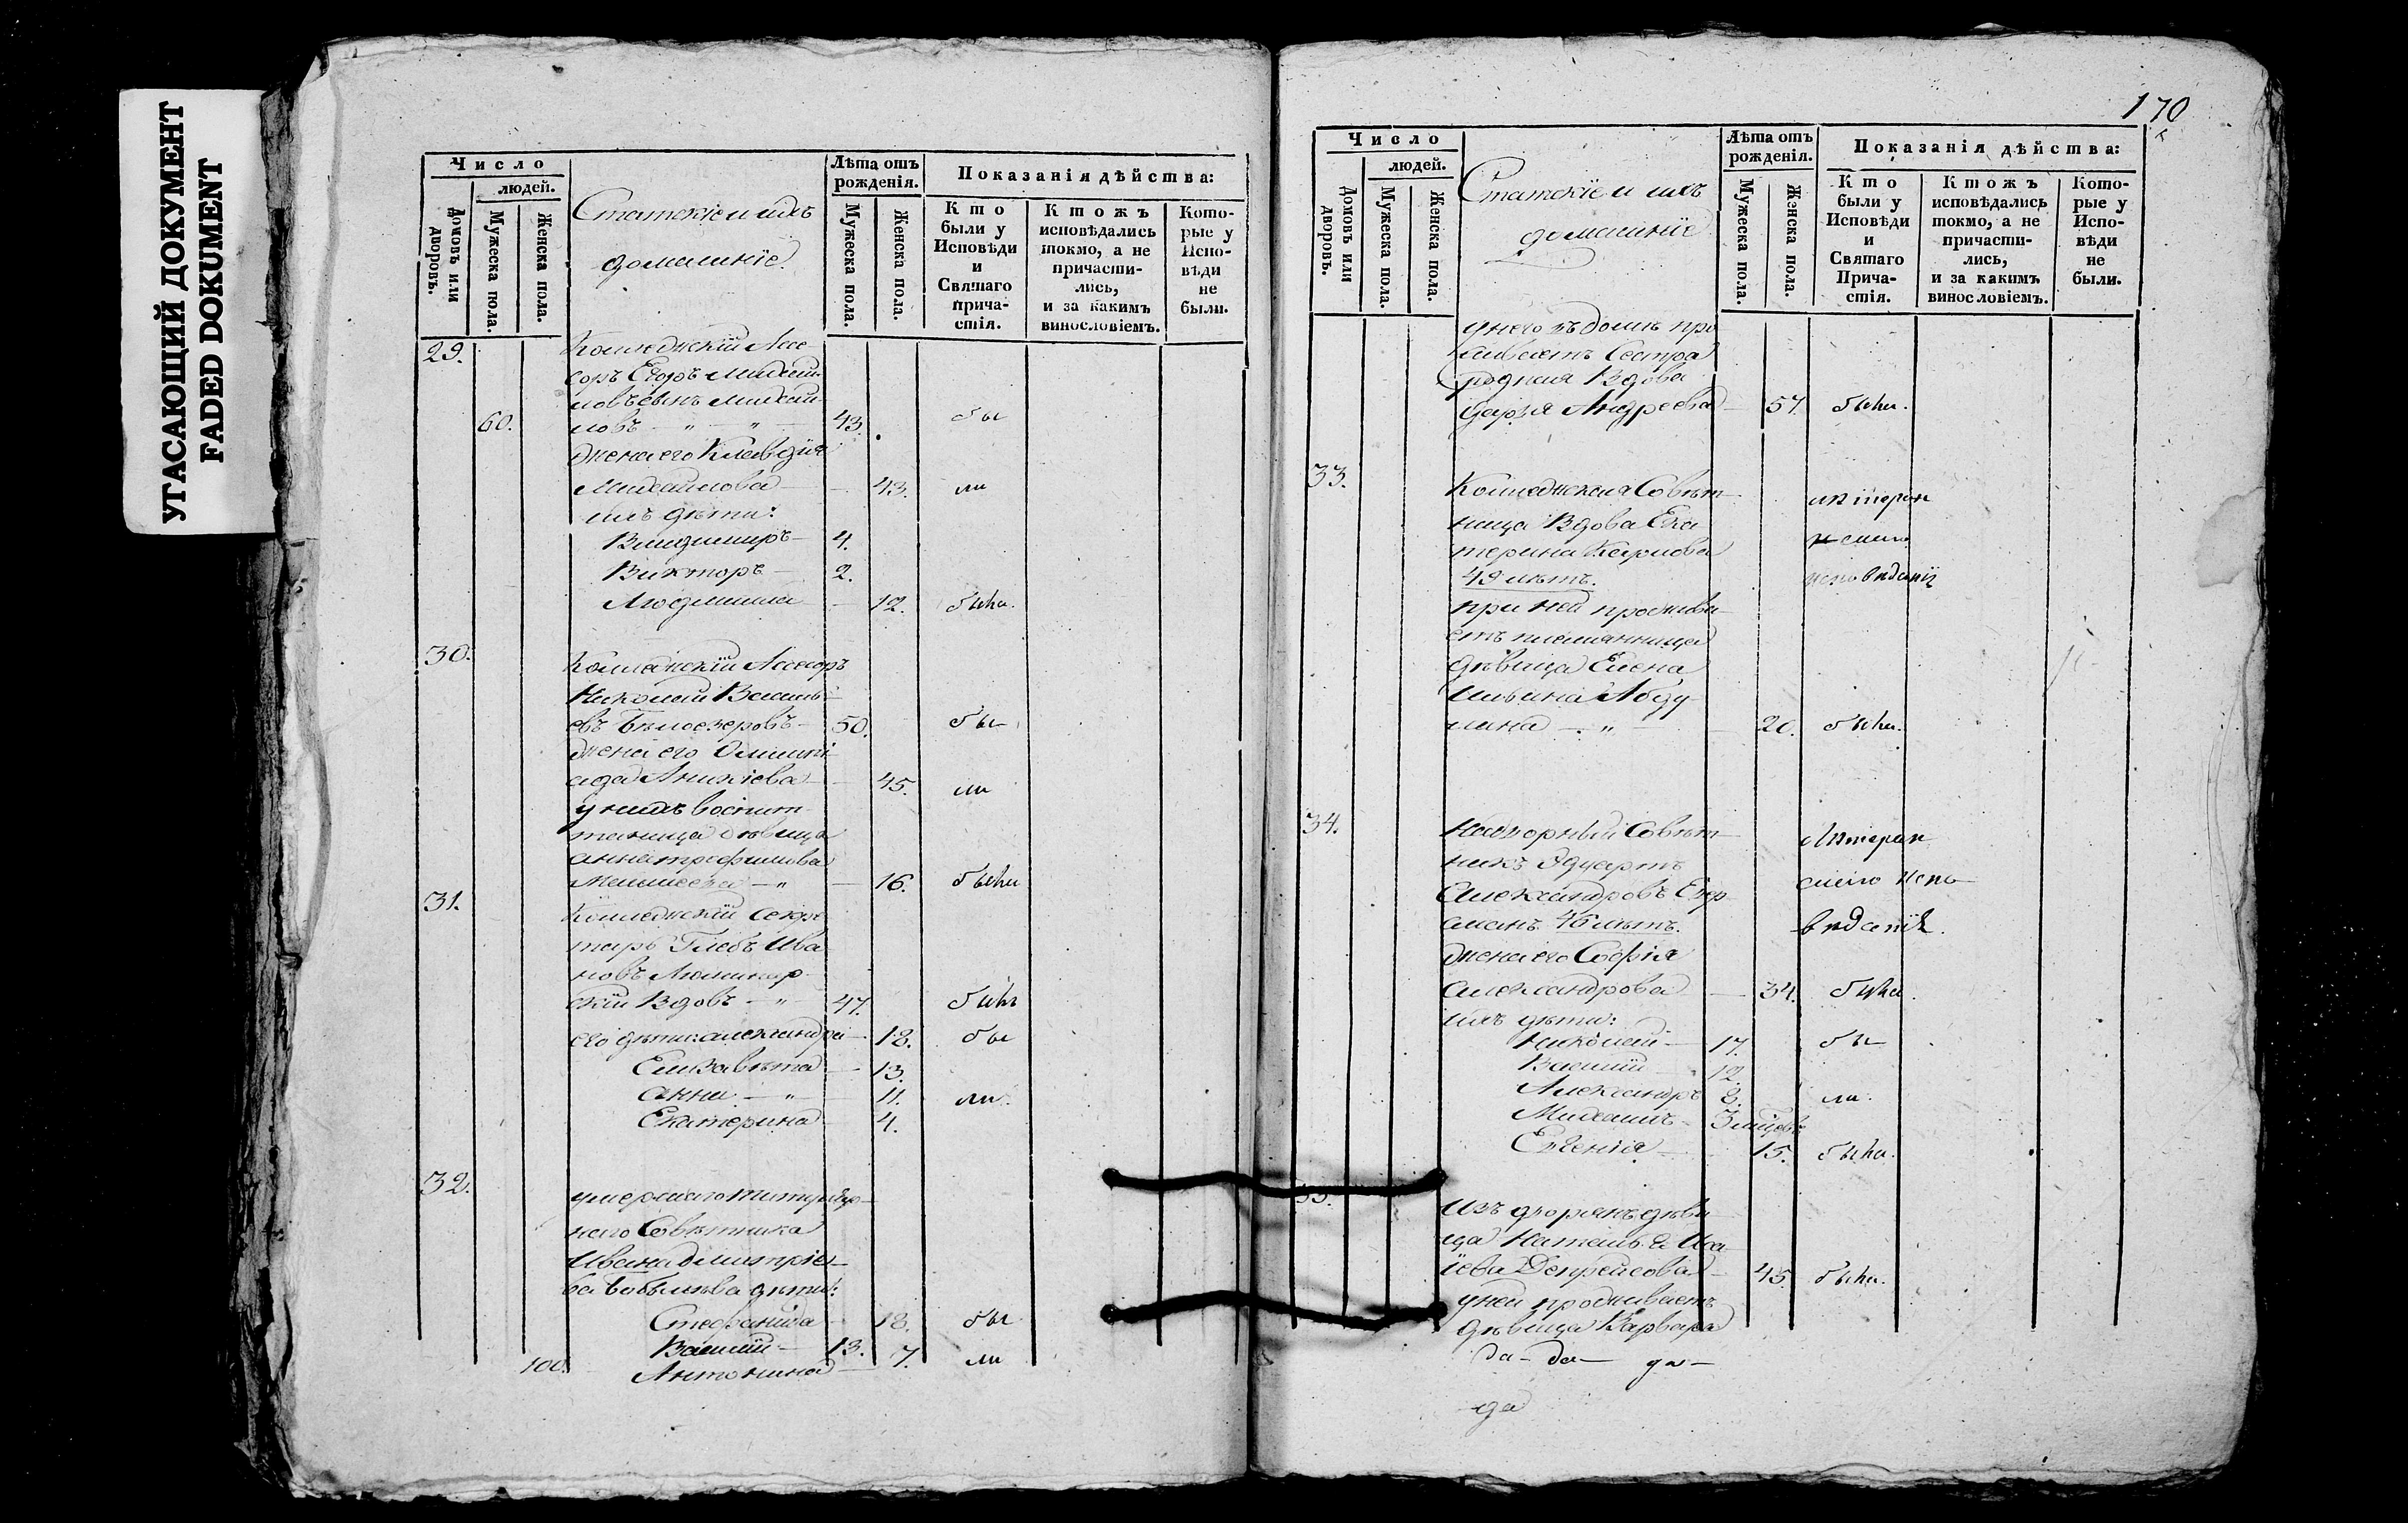 УГАСАЮЩИЙ ДОКУМЕНТ
FADED DOKUMENT
Число
людей.
Домовъ или дворовъ.
Мужеска пола.
Женска пола.
Статскіе и ихъ
домашніе.
Лѣта отъ рожденія.
Мужеска пола.
Женска пола.
Показанія дѣйства:
Кто были у Исповѣди и Святаго Причастія.
Ктожъ исповѣдались токмо, а не причастились, и за какимъ винословіемъ.
Которые у Исповѣди не были.
29. Коллежскій Ассе-
соръ Егоръ Михай-
ловъ сынъ Михай-
60. ловъ — „ — „ — 43. бы
жена его Клавдія
Михайлова — 43. ли
ихъ дѣти:
Владимиръ — 4.
Викторъ — 2.
Людмила — 12. была.
30. Коллежскій Ассесоръ
Николай Василь-
евъ Бѣлозеровъ — 50. бы
жена его Олимпі-
ада Аникіева — 45. ли
у нихъ воспит-
таница дѣвица
Анна Трофимова
— „ — 16. была
31. Коллежскій Секре
тарь Глебъ Ива
новъ
скій вдовъ — „ 47. былъ
его дѣти: Александра — 18. бы
Елизавѣта — 13.
Анна — „ — 11. ли.
Екатерина — 4.
32. умершаго Титуляр-
наго Совѣтника
Ивана Димитріе-
ва дѣти:
Стефанида — 18. бы
Василій — 13.
100. Антонина — 7. ли
170
Число
людей.
Домовъ или дворовъ.
Мужеска пола.
Женска пола.
Статскіе и ихъ
домашніе.
Лѣта отъ рожденія.
Мужеска пола.
Женска пола.
Показанія дѣйства:
Кто были у Исповѣди и Святаго Причастія.
Ктожъ исповѣдались токмо, а не причастились, и за какимъ винословіемъ.
Которые у Исповѣди не были.
у него въ домѣ про
живаетъ Сестра
родная вдова
Дарья Андреева — 57. была.
33. Коллежская Совѣт-
ница вдова Ека
терина Карлова
49 лѣтъ. исповѣданія
при ней прожива-
етъ племянница
дѣвица Елена
Ильина Абду
лина — „ — 20. была.
34. Надворный Совѣт- Лютеран
никъ Эдуартъ
Александровъ 46 лѣтъ. скаго испо-
вѣданія.
жена его Софія
Александрова — 34. была.
ихъ дѣти:
Николай — 17. бы
Василій — 12.
Александръ 8. ли.
Михаилъ — 3
Евгенія — 15. была.
Изъ дворянъ дѣви
ца Наталья
45. была.
у ней проживаетъ
дѣвица Варвара
да — да — да —
да